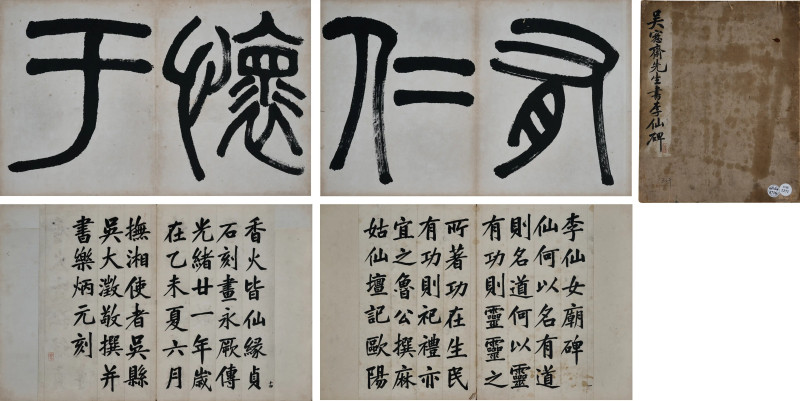 吳愙齋先生書李仙碑
有
仁
懷
于
李仙女廟碑
仙何以名有道
則名道何以靈
有功則靈靈之
所著功在生民
有功則祀禮亦
宜之魯公撰麻
姑仙壇記歐陽
香火皆仙緣貞
石刻畫永厥傳
光緒廿一年歲
在乙未夏六月
撫湘使者吳縣
吳大澂敬撰并
書樂炳元刻